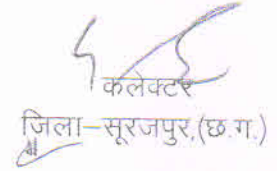 कलेक्टर
जिला–सूरजपुर,(छ.ग.)